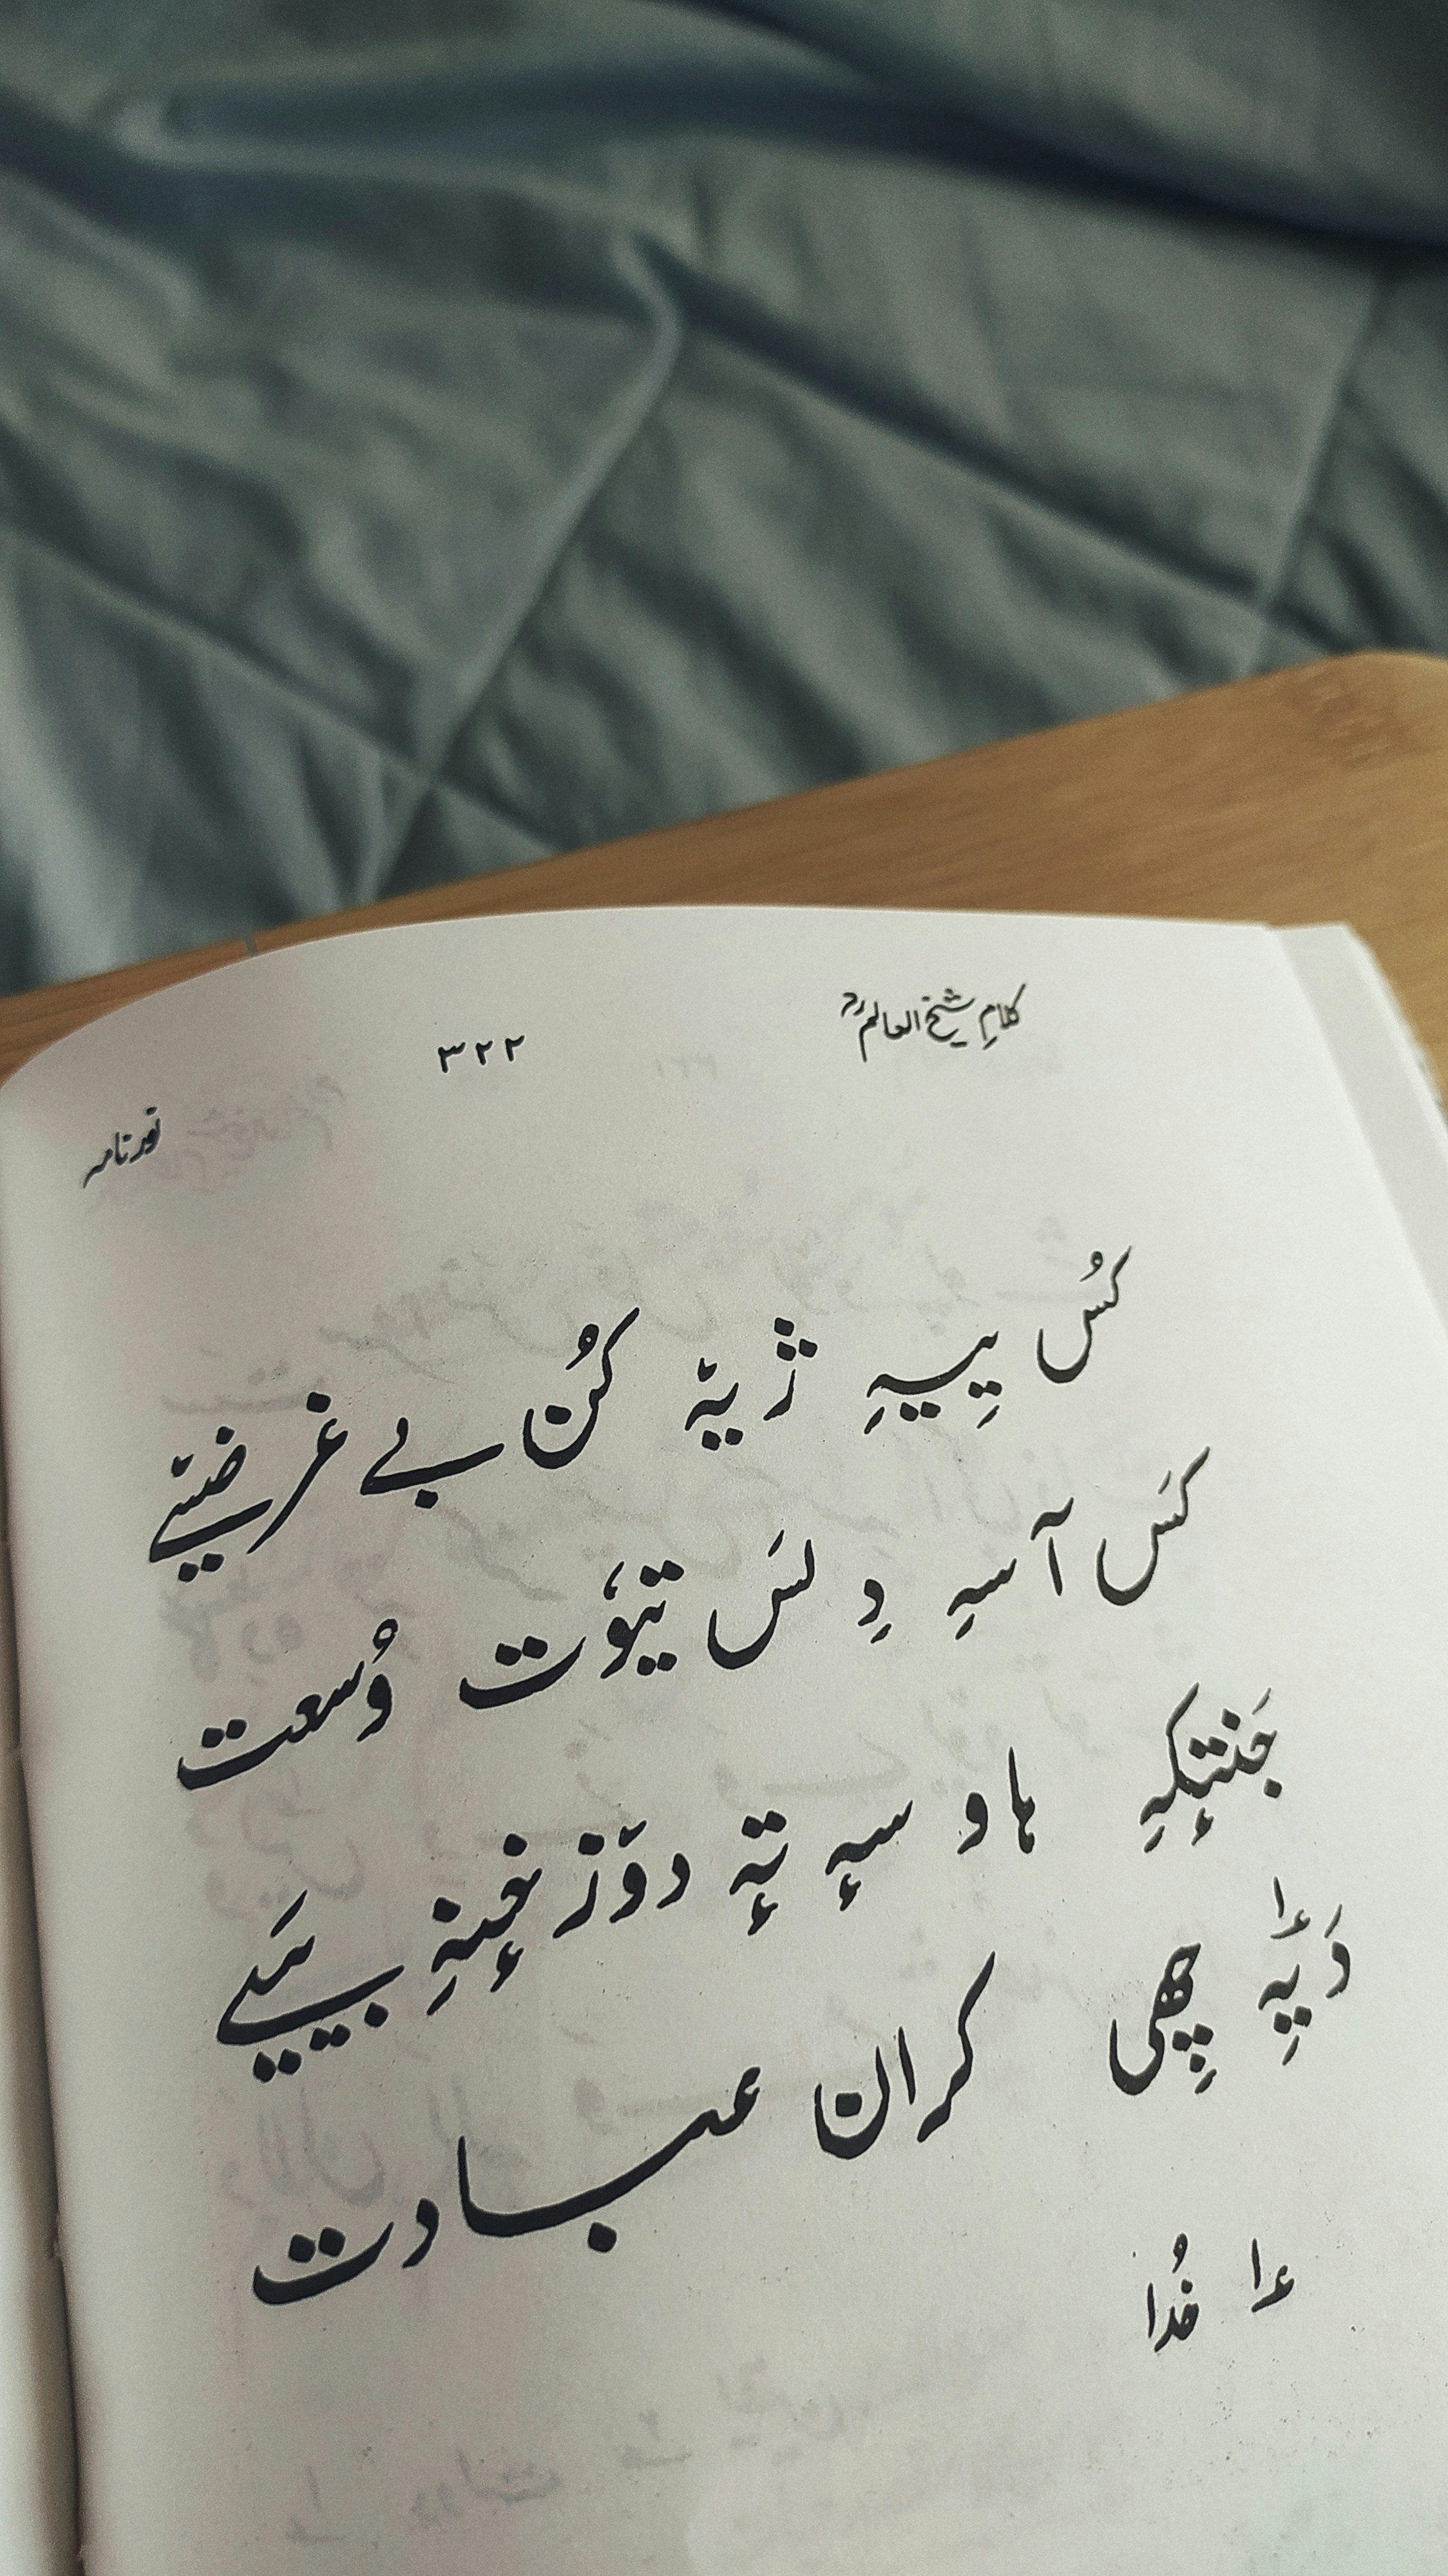 کلامِ شیخ العالمؒ ۳۲۲ نورنامہ
کُس یِیہِ ژیہٚ کُن بے غرضیٚے
کَس آسہِ دِلَس تیوٗت وُسعت
جَنتٕکہِ ہاوسہٕ تہٕ دوٚزخٕنہِ بیٖیَے
دَیہِ چھِی کران عبادت
۱؎ خُدا